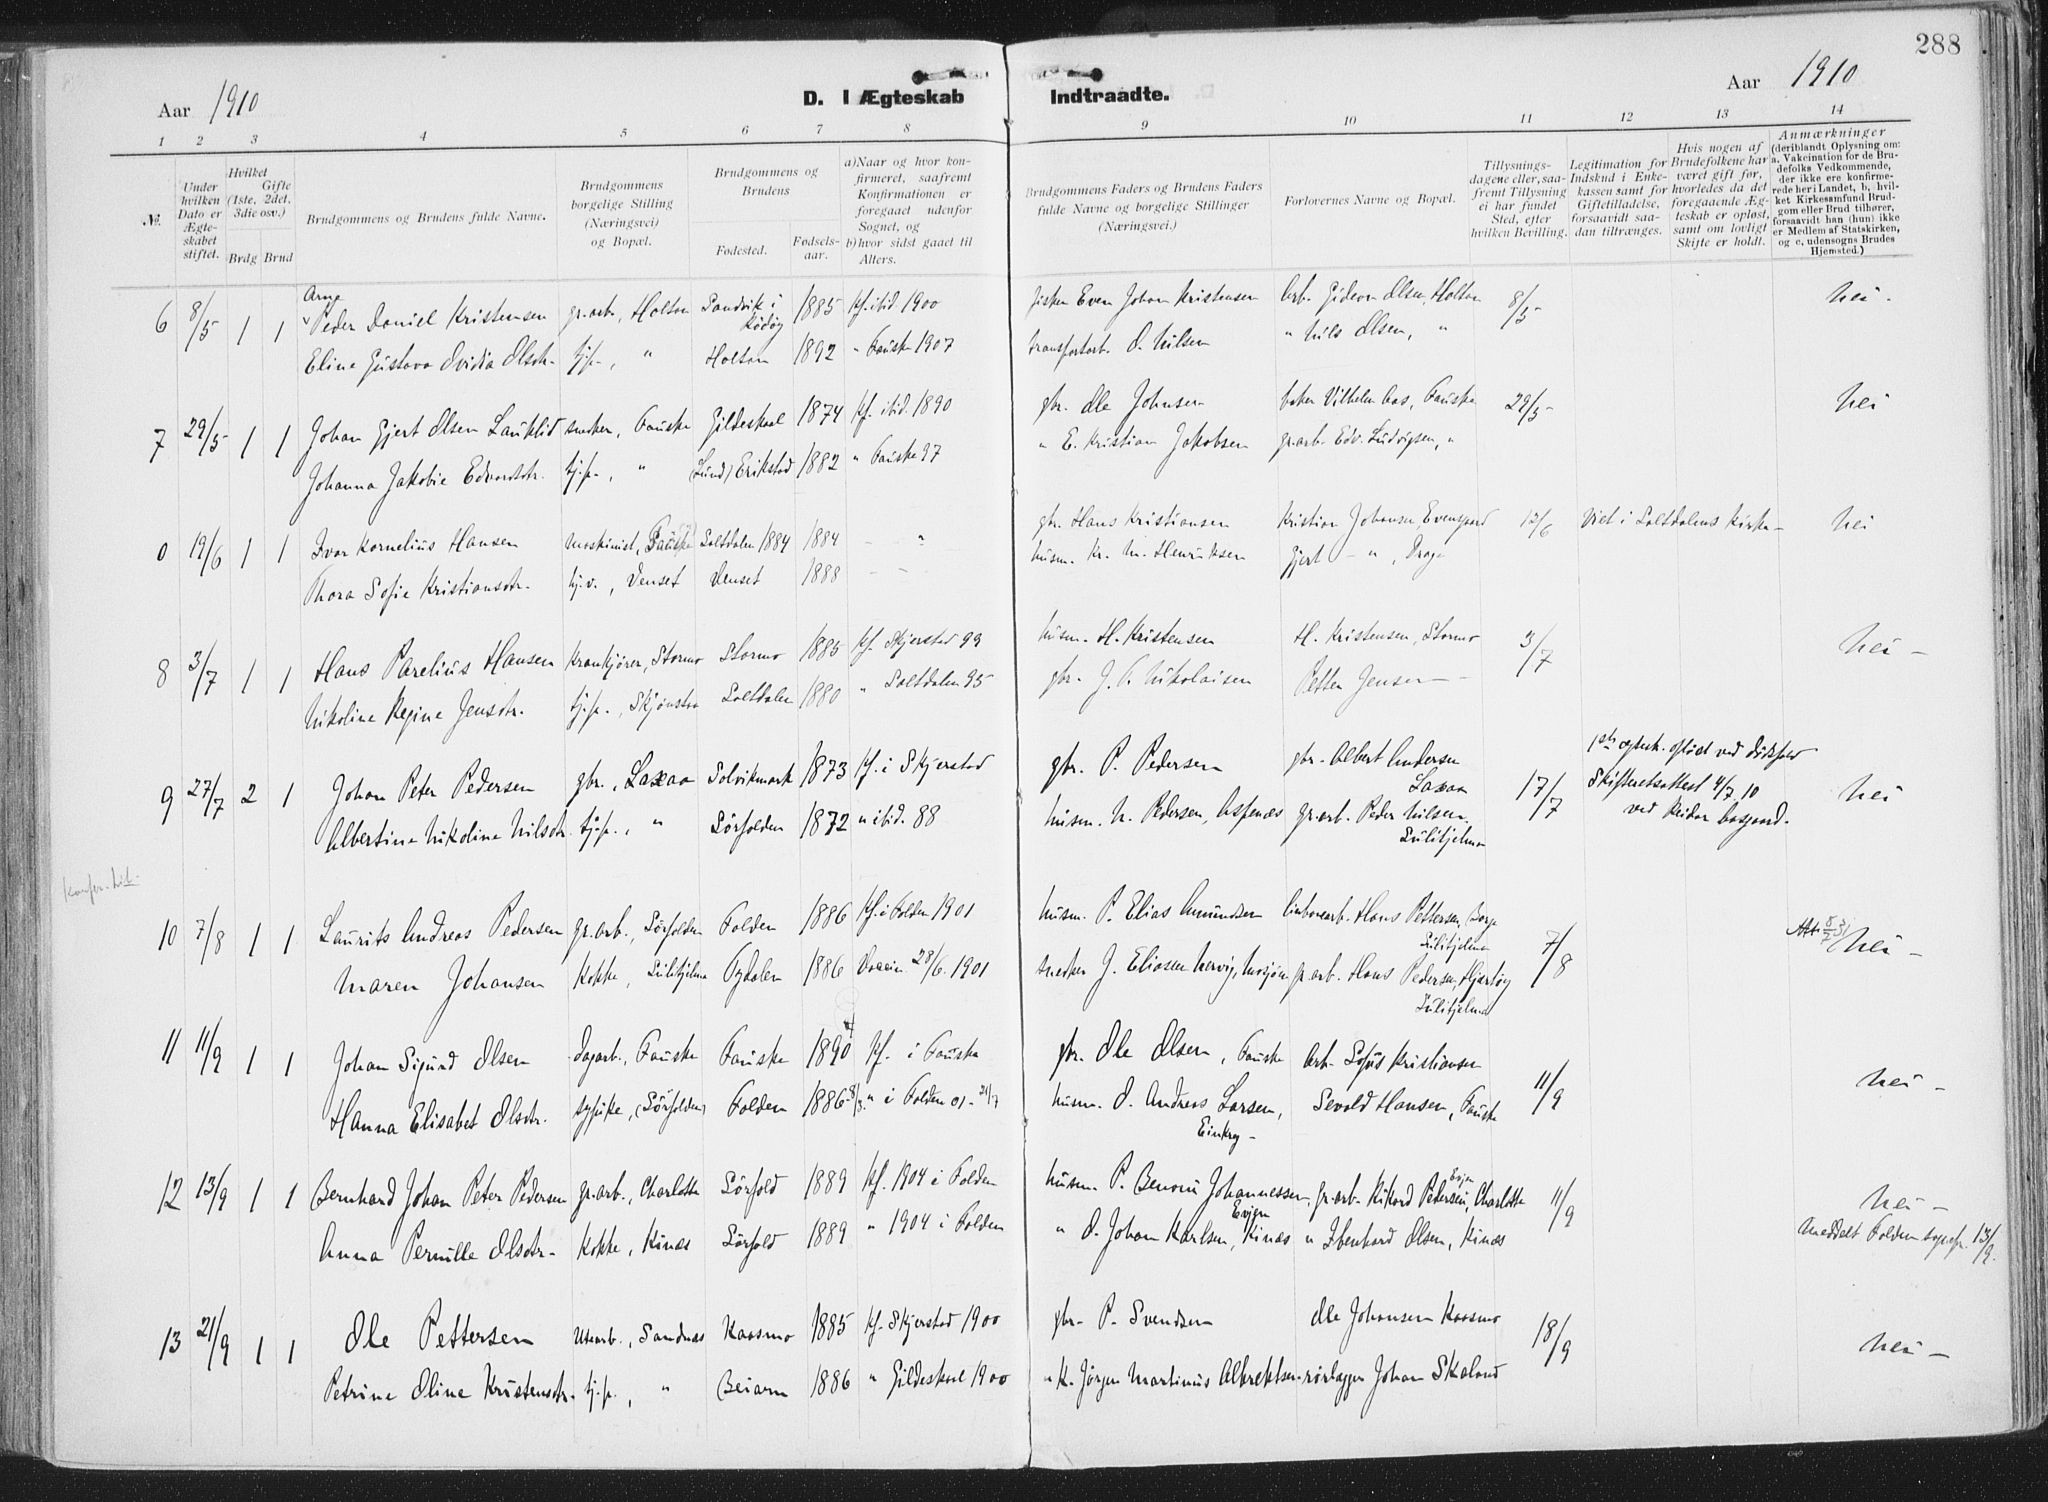 288
Aar 1910
D. I Ægteskab Indtraadte.
Aar 1910
1 2 3 4 5 6 7 8 9 10 11 12 13 14
№.
Under hvilken Dato er Ægteskabet stiftet.
Hvilket Gifte (1ste, 2det, 3die osv.)
Brdg Brud
Brudgommens og Brudens fulde Navne.
Brudgommens borgelige Stilling (Næringsvei) og Bopæl.
Brudgommens og Brudens
Fødested.
Fødselsaar.
a) Naar og hvor konfirmeret, saafremt Konfirmationen er foregaaet udenfor Sognet, og
b) hvor sidst gaaet til Alters.
Brudgommens Faders og Brudens Faders fulde Navne og borgelige Stillinger (Næringsvei.)
Forlovernes Navne og Bopæl.
Tillysningsdagene eller, saafremt Tillysning ei har fundet Sted, efter hvilken Bevilling.
Legitimation for Indskud i Enkekassen samt for Giftetilladelse, forsaavidt saadan tiltrænges.
Hvis nogen af Brudefolkene har været gift før, hvorledes da det foregaaende Ægteskab er opløst, samt om lovligt Skifte er holdt.
Anmærkninger (deriblandt Oplysning om: a. Vakcination for de Brudefolks Vedkommende, der ikke ere konfirmerede her i Landet, b, hvilket Kirkesamfund Brudgom eller Brud tilhører, forsaavidt han (hun) ikke er Medlem af Statskirken, og c, udensogns Brudes Hjemsted.)
Arne
6 8/5 1 1 Peder Daniel Kristensen gr.arb., Holton Sandvik i Rödöy 1885 kf. ibid 1900 fisker Even Johan Kristensen Arb. Gideon Olsen, Holton 8/5 Nei -
Eline Gustava Ovidia Olsdtr. tj.p., " Holton 1892 " Fauske 1907 transportarb. O. Nilsen " Nils Olsen, "
7 29/5 1 1 Johan Gjert Olsen Lauklid snekker, Fauske Gildeskaal 1874 kf. ibid. 1890 gbr. Ole Johnsen baker Vilhelm Aas, Fauske 29/5 Nei
Johanna Jakobie Edvardsdtr. tj.p., " (Lund) Erikstad 1882 " Fauske 97 " E. Kristian Jakobsen gr.arb. Edv. Ludvigsen, "
0 19/6 1 1 Ivar Kornelius Hansen Maskinist, Fauske Saltdalen 1884 1884 - " gbr. Hans Kristiansen Kristian Johansen, Evensgaard 12/6 Viet i Saltdalens Kirke - Nei
Thora Sofie Kristiansdtr. tj.v., Venset Venset 1888 - - husm. Kr. M. Henriksen Gjert - " ,
8 3/7 1 1 Hans Parelius Hansen Krankjörer, Stormo Stormo 1885 kf. Skjerstad 99 husm. H. Kristensen H. Kristensen, Stormo 3/7 Nei -
Nikoline Regine Jensdtr. tj.p., Skjönstaa Saltdalen 1880 " Saltdalen 95 gbr. J. A. Nikolaisen Petter Jensen -
9 27/7 2 1 Johan Peter Pedersen gbr., Laxaa Solvikmark 1873 kf. i Skjerstad gbr. P. Pedersen gbr. Albert Andersen Laxaa 17/7 1ste ægtesk. oplöst ved dödsfald Nei
Albertine Nikoline Nilsdtr. tj.p., " Sörfolden 1872 " ibid. 88 husm. N. Pedersen, Aspenæs gr.arb. Peder Nilsen, Sulitjelma Skifteretsattest 4/7 10 ved Reidar
Konfer.
10 7/8 1 1 Laurits Andreas Pedersen gr.arb., Sörfolden Folden 1886 kf. i Folden 1901 husm. P. Elias Amundsen Linbanearb. Hans Pettersen, Sulitjelma 7/8 Att. 8/7 31 Nei -
Maren Johansen Kokke, Sulitjelma Tydalen 1886 28/6 1901 snekker J. Eliasen Nervig, Mosjöen gr.arb. Hans Pedersen, Hjartöy Sulitjelma
11 11/9 1 1 Johan Sigurd Olsen Dagarb., Fauske Fauske 1890 kf. i Fauske gbr. Ole Olsen, Fauske Arb. Sofus Kristiansen 11/9 Nei -
Hanna Elisabet Olsdtr. sypike, (Sörfolden) Folden 1886 8/3 " i Folden 01 - 21/7 husm. O. Andreas Larsen, Sevald Hansen, Fauske
12 13/9 1 1 Bernhard Johan Peter Pedersen gr.arb., Charlotta Sörfold 1889 kf. 1904 i Folden husm. P. Benoni Johannessen, Evjen gr.arb. Rikard Pedersen, Evjen Charlotte 11/9 Nei -
Anna Pernille Olsdtr. Kokke, Kinæs Sörfold 1889 " 1904 i Folden " O. Johan Karlsen, Kinæs " Ibenhard Olsen, Kinæs Meddelt Folden sognepr. 13/9.
13 21/9 1 1 Ole Pettersen Utearb., Sandnæs Kaasmo 1885 kf. Skjerstad 1900 gbr. P. Svendsen Ole Johansen Kaasmo 18/9 Nei -
Petrine Oline Kristensdtr. tj.p., " Beiarn 1886 " Gildeskaal 1900 " K. Jörgen Martinus Albrektsen rörlægger Johan Skaland